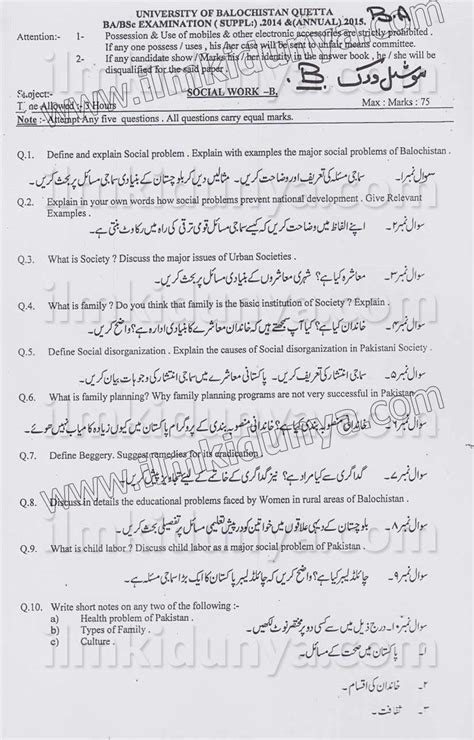 UNIVERSITY OF BALOCHISTAN QUETTA
BA/BSc EXAMINATION ( SUPPL:) .2014 &(ANNUAL) 2015.
B.A
Attention:- 1- Possession & Use of mobiles & other electronic accessories are strictly prohibited .
If any one possess / uses , his /her case will be sent to unfair means committee.
2- If any candidate show / Marks his / her identity in the answer book , he / she will be
disqualified for the said paper .
سوشل ورک B.
Subject:- SOCIAL WORK –B,
Time Allowed :- 3 Hours Max : Marks : 75
Note :- Attempt Any five questions . All questions carry equal marks.
Q.1. Define and explain Social problem . Explain with examples the major social problems of Balochistan .
سوال نمبر۱۔ سماجی مسئلہ کی تعریف اور وضاحت کریں۔ مثالیں دیں کر بلوچستان کے بنیادی سماجی مسائل پر بحث کریں۔
Q.2. Explain in your own words how social problems prevent national development . Give Relevant
Examples .
سوال نمبر۲۔ اپنے الفاظ میں وضاحت کریں کہ کیسے سماجی مسائل قومی ترقی کی راہ میں رکاوٹ بنتی ہے۔
Q.3. What is Society ? Discuss the major issues of Urban Societies .
سوال نمبر۳۔ معاشرہ کیا ہے؟ شہری معاشروں کے بنیادی مسائل پر بحث کریں۔
Q.4. What is family ? Do you think that family is the basic institution of Society ? Explain .
سوال نمبر۴۔ خاندان کیا ہے؟ کیا آپ سمجھتے ہیں کہ خاندان معاشرے کا بنیادی ادارہ ہے؟ واضح کریں۔
Q.5. Define Social disorganization . Explain the causes of Social disorganization in Pakistani Society .
سوال نمبر۵۔ سماجی انتشار کی تعریف کریں۔ پاکستانی معاشرے میں سماجی انتشار کی وجوہات بیان کریں۔
Q.6. What is family planning? Why family planning programs are not very successful in Pakistan
سوال نمبر۶۔ خاندانی منصوبہ بندی کیا ہے؟ خاندانی منصوبہ بندی کے پروگرام پاکستان میں کیوں زیادہ کامیاب نہیں ہوئے۔
Q.7. Define Beggery. Suggest remedies for its eradication .
سوال نمبر۷۔ گداگری سے کیا مراد ہے؟ نیز گداگری کے خاتمے کے لئے تجاویز دیں۔
Q.8. Discuss in details the educational problems faced by Women in rural areas of Balochistan .
سوال نمبر۸۔ بلوچستان کے دیہی علاقوں میں خواتین کو درپیش تعلیمی مسائل پر تفصیلی بحث کریں۔
Q.9. What is child labor ? Discuss child labor as a major social problem of Pakistan .
سوال نمبر۹۔ چائلڈ لیبر کیا ہے؟ واضح کریں کہ چائلڈ لیبر پاکستان کا ایک بڑا سماجی مسئلہ ہے۔
Q.10. Write short notes on any two of the following :-
سوال نمبر۱۰۔ درج ذیل میں سے کسی دو پر مختصر نوٹ لکھیں۔
a) Health problem of Pakistan .
b) Types of Family .
c) Culture .
۱۔ پاکستان میں صحت کے مسائل۔
۲۔ خاندان کی اقسام۔
۳۔ ثقافت۔
www.ilmkidunya.com
www.ilmkidunya.com
ilmkidunya.com
ilmkidunya.com
ilmkidunya.com
ilmkidunya.com